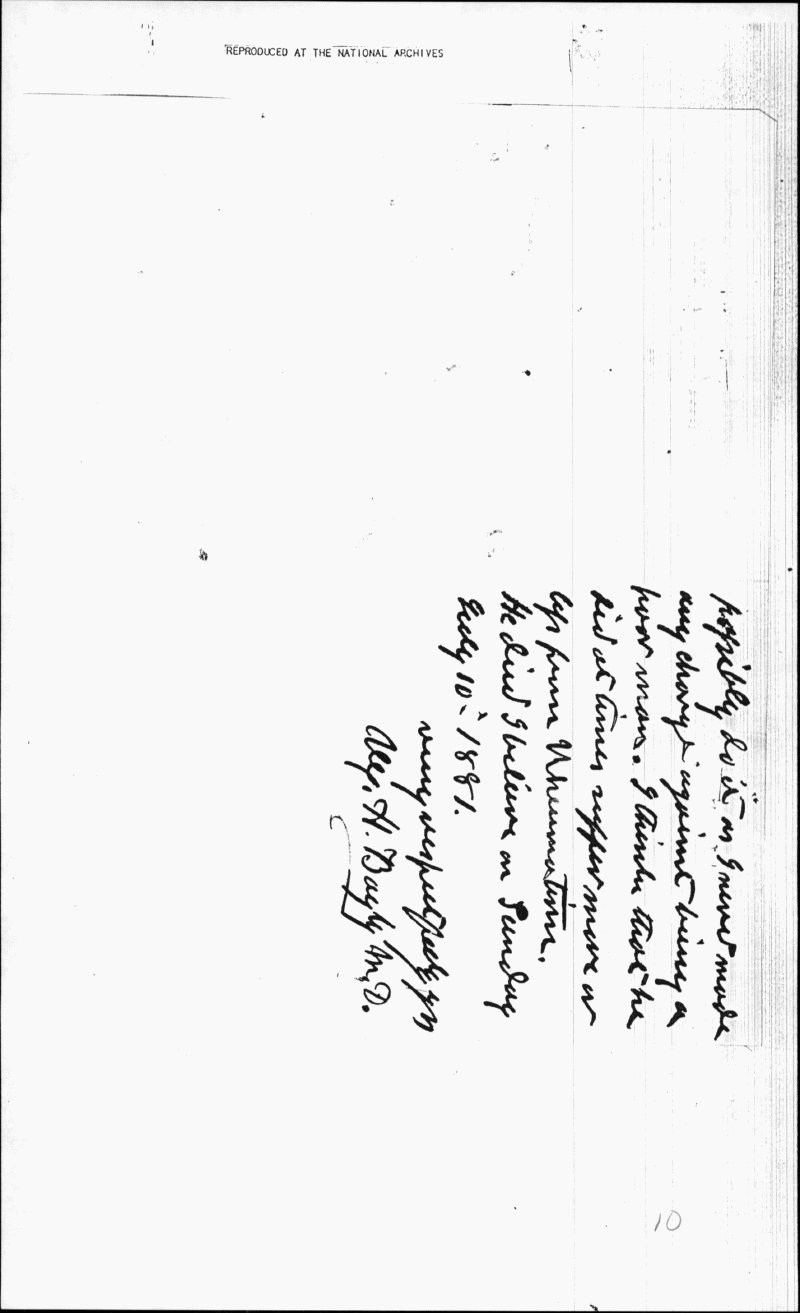 REPRODUCED AT THE NATIONAL ARCHIVES
possibly do it as I never made
any charge against being a
poor man. I think that he
did at times suffer more or
less from Rheumatism.
He died I believe on Sunday
July 10 - 1881.
very respectfully yrs
Alex. H. Bayly M.D.
10